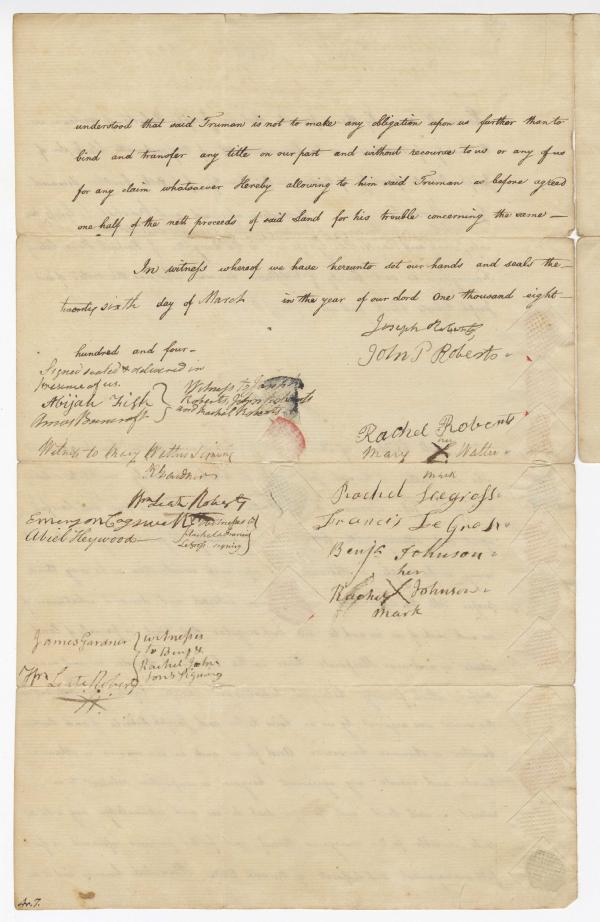 understood that said Truman is not to make any obligation upon us further than to
bind and transfer any title on our part and without recourse to us or any of us
for any claim whatsoever Hereby allowing to him said Truman as before agreed
one half of the nett proceeds of said Land for his trouble concerning the same —
In witness whereof we have hereunto set our hands and seals the
twenty sixth day of March in the year of our Lord One thousand eight
hundred and four
Joseph Roberts
John P Roberts
Signed sealed & delivered in
presence of us.
Abijah Fish
Amos Bancroft
Witness to Joseph
Roberts, John Roberts
and Rachel Roberts
Rachel Roberts
her
Mary X Walter
mark
Witness to Mary Walter Signing
Gardner
Wm Leate Roberts
Emerson Cogswell
Abiel Heywood
Witnesses to
Rachel & Francis
Legross signing
Rachel Legross
Francis Le Gross
Benja Johnson
her
Rachel X Johnson
mark
James Gardner
Wm Leate Roberts
witnesses
to Benj &
Rachel John
son's signing